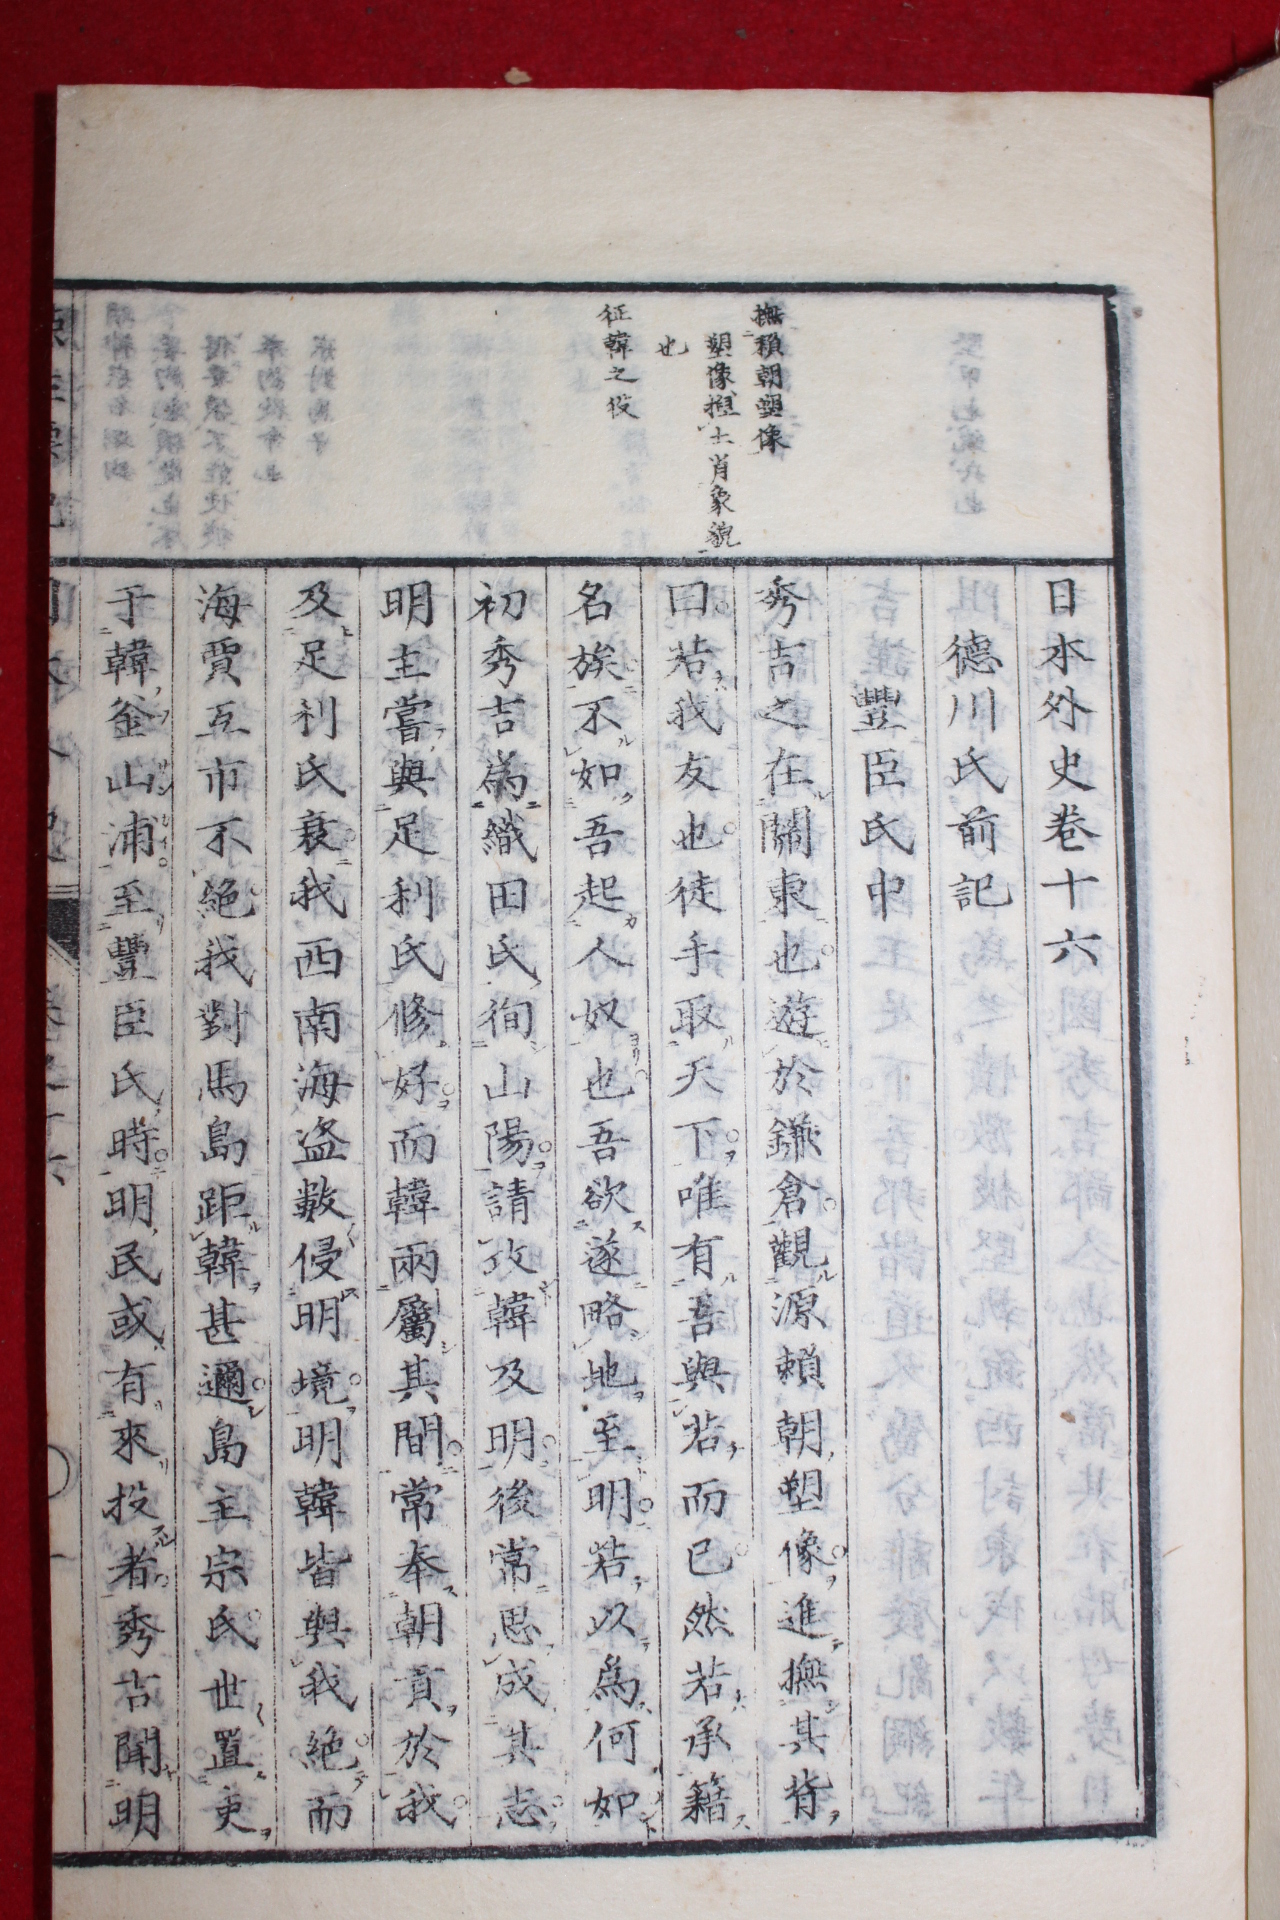 撫頼朝塑像
塑像揑土肖象貌
也
征韓之役
日本外史卷十六
德川氏前記
豐臣氏中
秀吉之在關東也遊於鎌倉觀源賴朝塑像進撫其背
曰若我友也徒手取天下唯有吾與若而已然若承籍
名族不如吾起人奴也吾欲遂略地至明若以爲何如
初秀吉爲織田氏徇山陽請攻韓及明後常思成其志
明主嘗與足利氏修好而韓兩屬其間常奉朝貢於我
及足利氏衰我西南海盗數侵明境明韓皆與我絶而
海賈互市不絶我對馬島距韓甚邇島主宗氏世置吏
于韓釜山浦至豐臣氏時明民或有來投者秀吉聞明